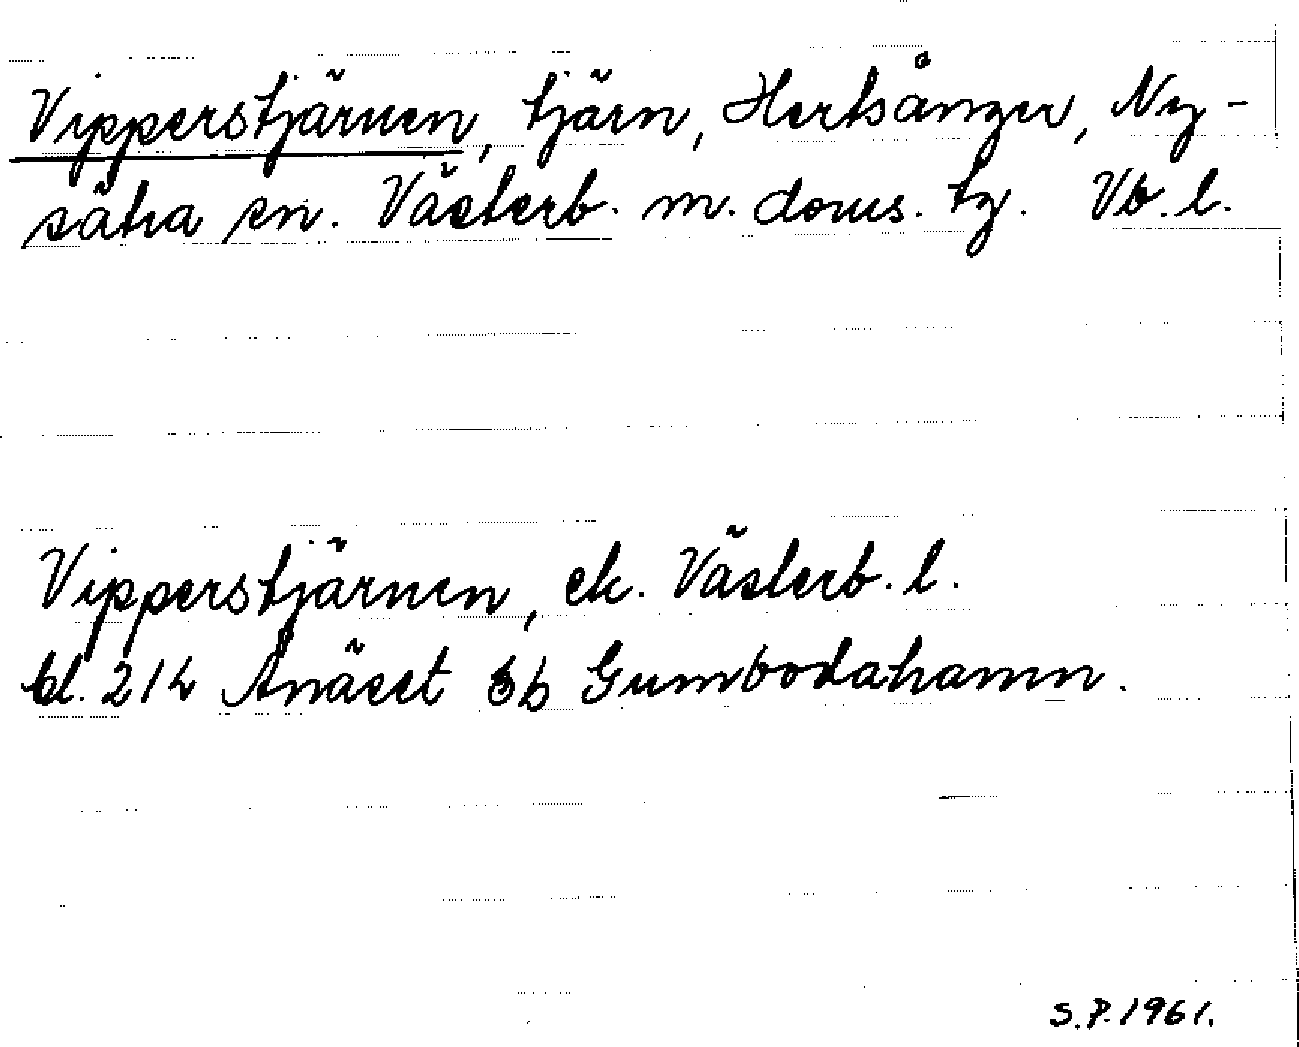 Vipperstjärnen, tjärn, Hertsånger, Ny-
sätra sn. Västerb. m. doms. tg. Vb. l.
Vipperstjärnen, ek. Västerb. l.
bl. 214 Ånäset 3b Gumbodahamn.
S.P. 1961.